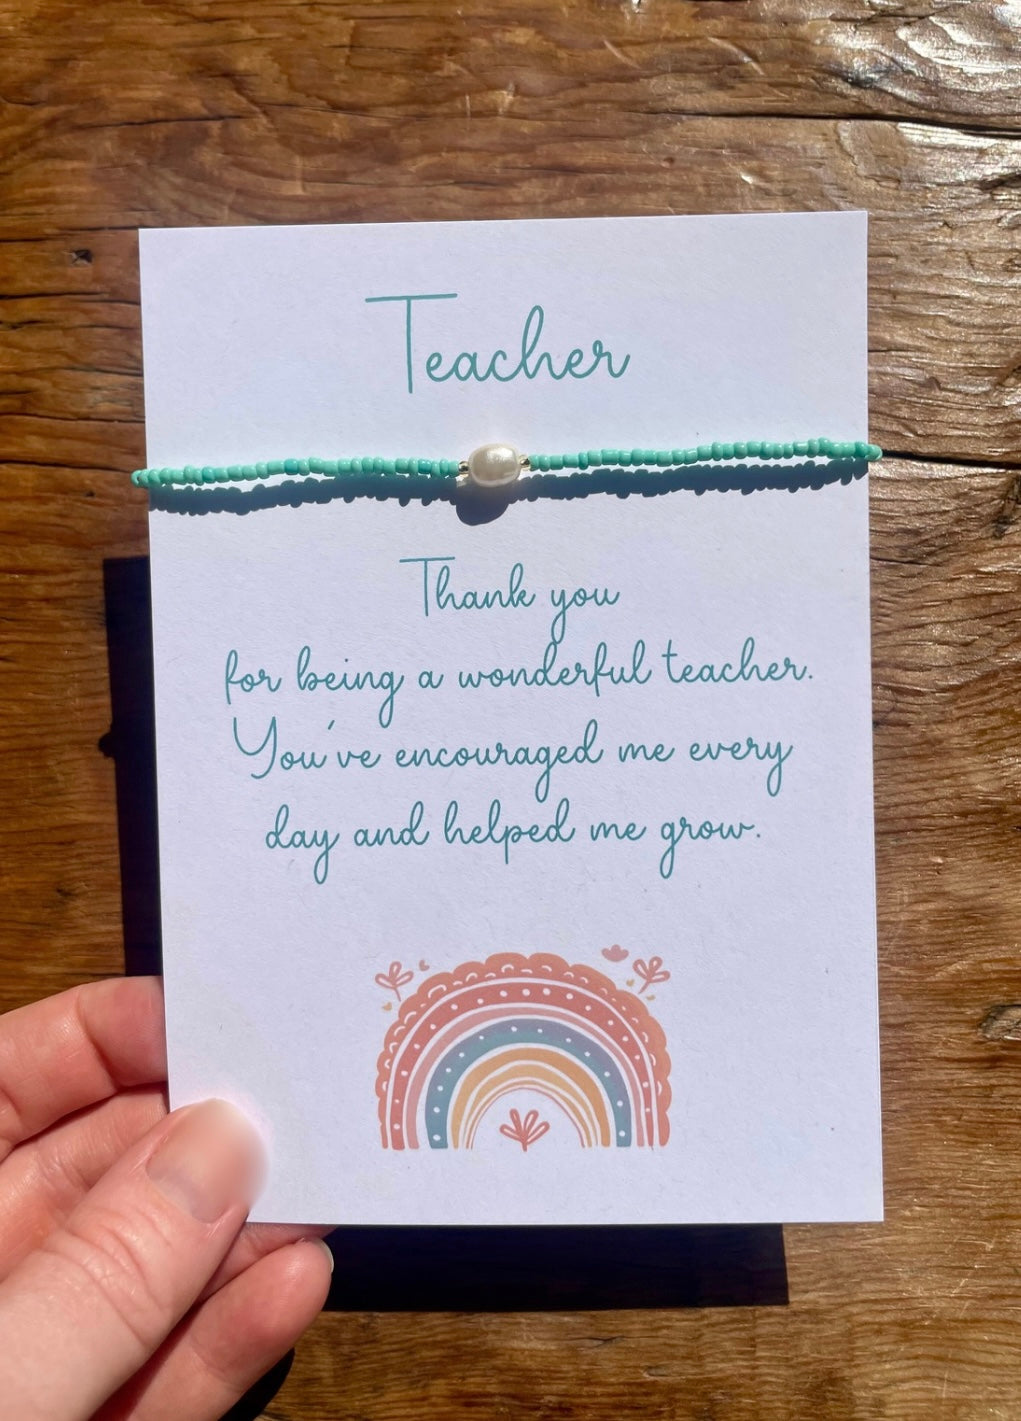 Teacher
Thank you
for being a wonderful teacher.
You've encouraged me every
day and helped me grow.